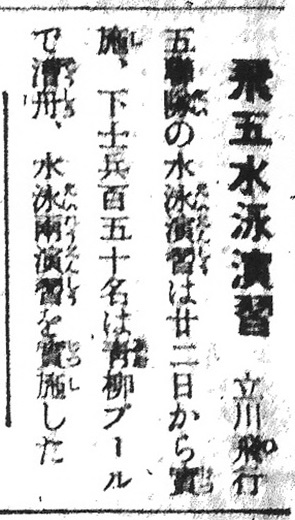 飛五水泳演習 立川飛行
五聯隊の水泳演習は廿二日から實
施、下士兵百五十名は青柳プール
で漕舟、水泳兩演習を實施した